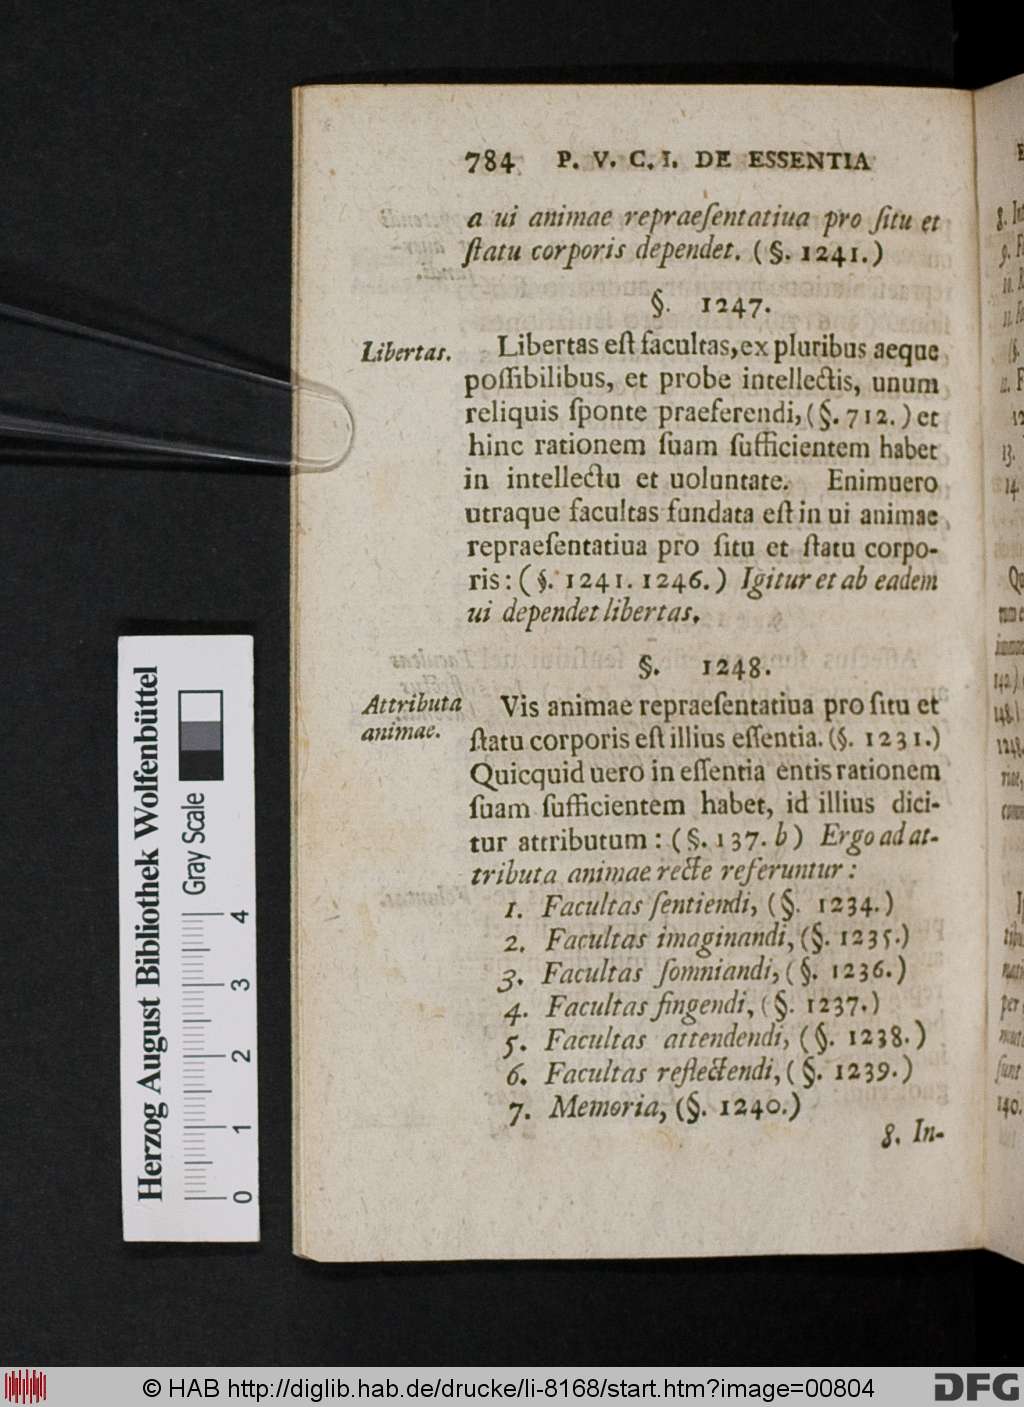 784 P. V. C. I. DE ESSENTIA
a ui animae repraeſentatiua pro ſitu et
ſtatu corporis dependet. (§. 1241.)
§. 1247.
Libertas.
Libertas eſt facultas, ex pluribus aeque
poſſibilibus, et probe intellectis, unum
reliquis ſponte praeferendi, (§. 712.) et
hinc rationem ſuam ſufficientem habet
in intellectu et uoluntate. Enimuero
utraque facultas fundata eſt in ui animae
repraeſentatiua pro ſitu et ſtatu corpo-
ris: (§. 1241. 1246.) Igitur et ab eadem
ui dependet libertas.
§. 1248.
Attributa
animae.
Vis animae repraeſentatiua pro ſitu et
ſtatu corporis eſt illius eſſentia. (§. 1231.)
Quicquid uero in eſſentia entis rationem
ſuam ſufficientem habet, id illius dici-
tur attributum: (§. 137. b) Ergo ad at-
tributa animae recte referuntur:
1. Facultas ſentiendi, (§. 1234.)
2. Facultas imaginandi, (§. 1235.)
3. Facultas ſomniandi, (§. 1236.)
4. Facultas fingendi, (§. 1237.)
5. Facultas attendendi, (§. 1238.)
6. Facultas reflectendi, (§. 1239.)
7. Memoria, (§. 1240.)
8. In-
Herzog August Bibliothek Wolfenbüttel
Gray Scale
0 1 2 3 4
© HAB http://diglib.hab.de/drucke/li-8168/start.htm?image=00804
DFG